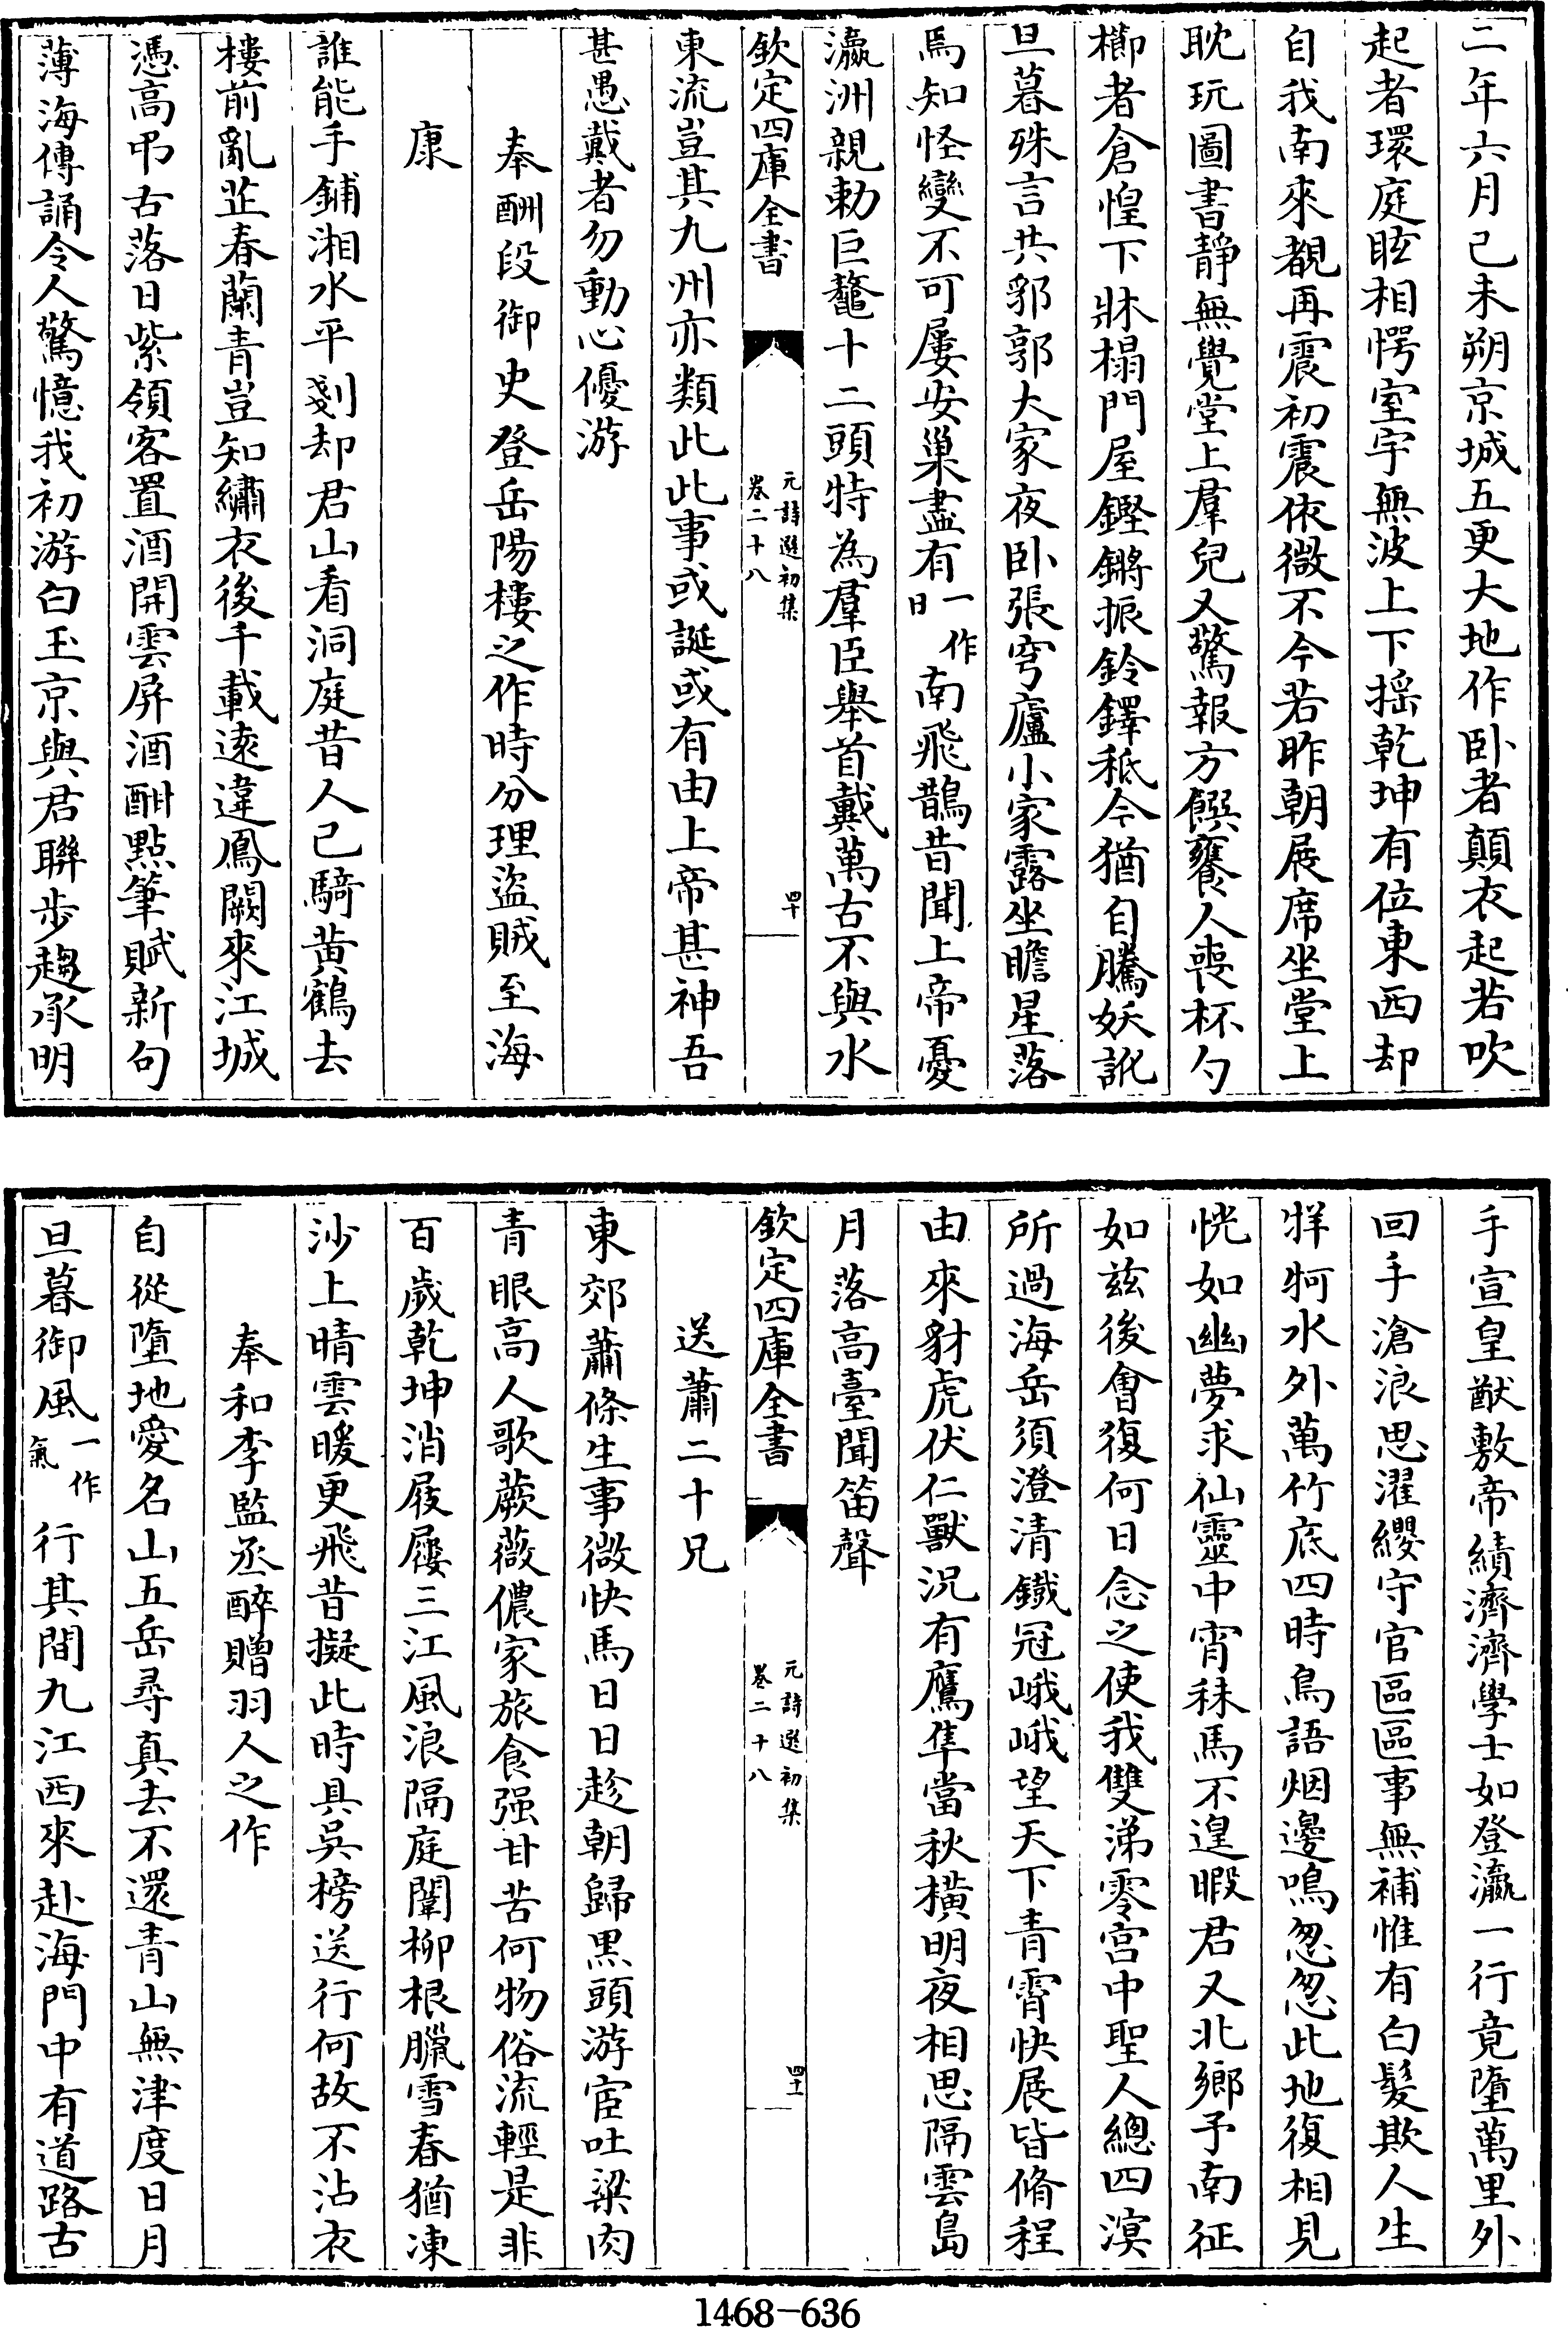 二年六月己未朔京城五更大地作卧者顛衣起若吹
起者環庭眩相愕室宇無波上下揺乾坤有位東西却
自我南來覩再震初震依微不今若昨朝展席坐堂上
耽玩圖書靜無覺堂上羣兒又驚報方饌饔人喪杯勺
櫛者倉惶下牀榻門屋鏗鏘振鈴鐸秪今猶自騰妖訛
旦暮殊言共郛郭大家夜卧張穹廬小家露坐瞻星落
焉知怪變不可屢安巢盡有一作日南飛鵲昔聞上帝憂
瀛洲親勅巨鼇十二頭特為羣臣舉首戴萬古不與水
欽定四庫全書 元詩選初集 卷二十八 四十
東流豈其九州亦類此此事或誕或有由上帝甚神吾
甚愚戴者勿動心優游
奉酬段御史登岳陽樓之作時分理盜賊至海
康
誰能手鋪湘水平剗却君山看洞庭昔人已騎黄鶴去
樓前亂芷春蘭青豈知繡衣後千載遠違鳳闕來江城
憑高弔古落日紫領客置酒開雲屏酒酣點筆賦新句
薄海傳誦令人驚憶我初游白玉京與君聯步趨承明
手宣皇猷敷帝績濟濟學士如登瀛一行竟墮萬里外
回手滄浪思濯纓守官區區事無補惟有白髮欺人生
牂牁水外萬竹底四時鳥語烟邊鳴忽忽此地復相見
恍如幽夢求仙靈中宵秣馬不遑暇君又北鄉予南征
如兹後會復何日念之使我雙涕零宫中聖人總四溟
所過海岳須澄清鐵冠峨峨望天下青霄快展皆脩程
由來豺虎伏仁獸況有鷹隼當秋横明夜相思隔雲島
月落高臺聞笛聲
欽定四庫全書 元詩選初集 卷二十八 四十一
送蕭二十兄
東郊蕭條生事微快馬日日趁朝歸黑頭游宦吐粱肉
青眼高人歌蕨薇儂家旅食强甘苦何物俗流輕是非
百歲乾坤消屐屨三江風浪隔庭闈柳根臘雪春猶凍
沙上晴雲暖更飛昔擬此時具吳榜送行何故不沾衣
奉和李監丞醉贈羽人之作
自從墮地愛名山五岳尋真去不還青山無津度日月
旦暮御風一作氣行其間九江西來赴海門中有道路古
1468-636